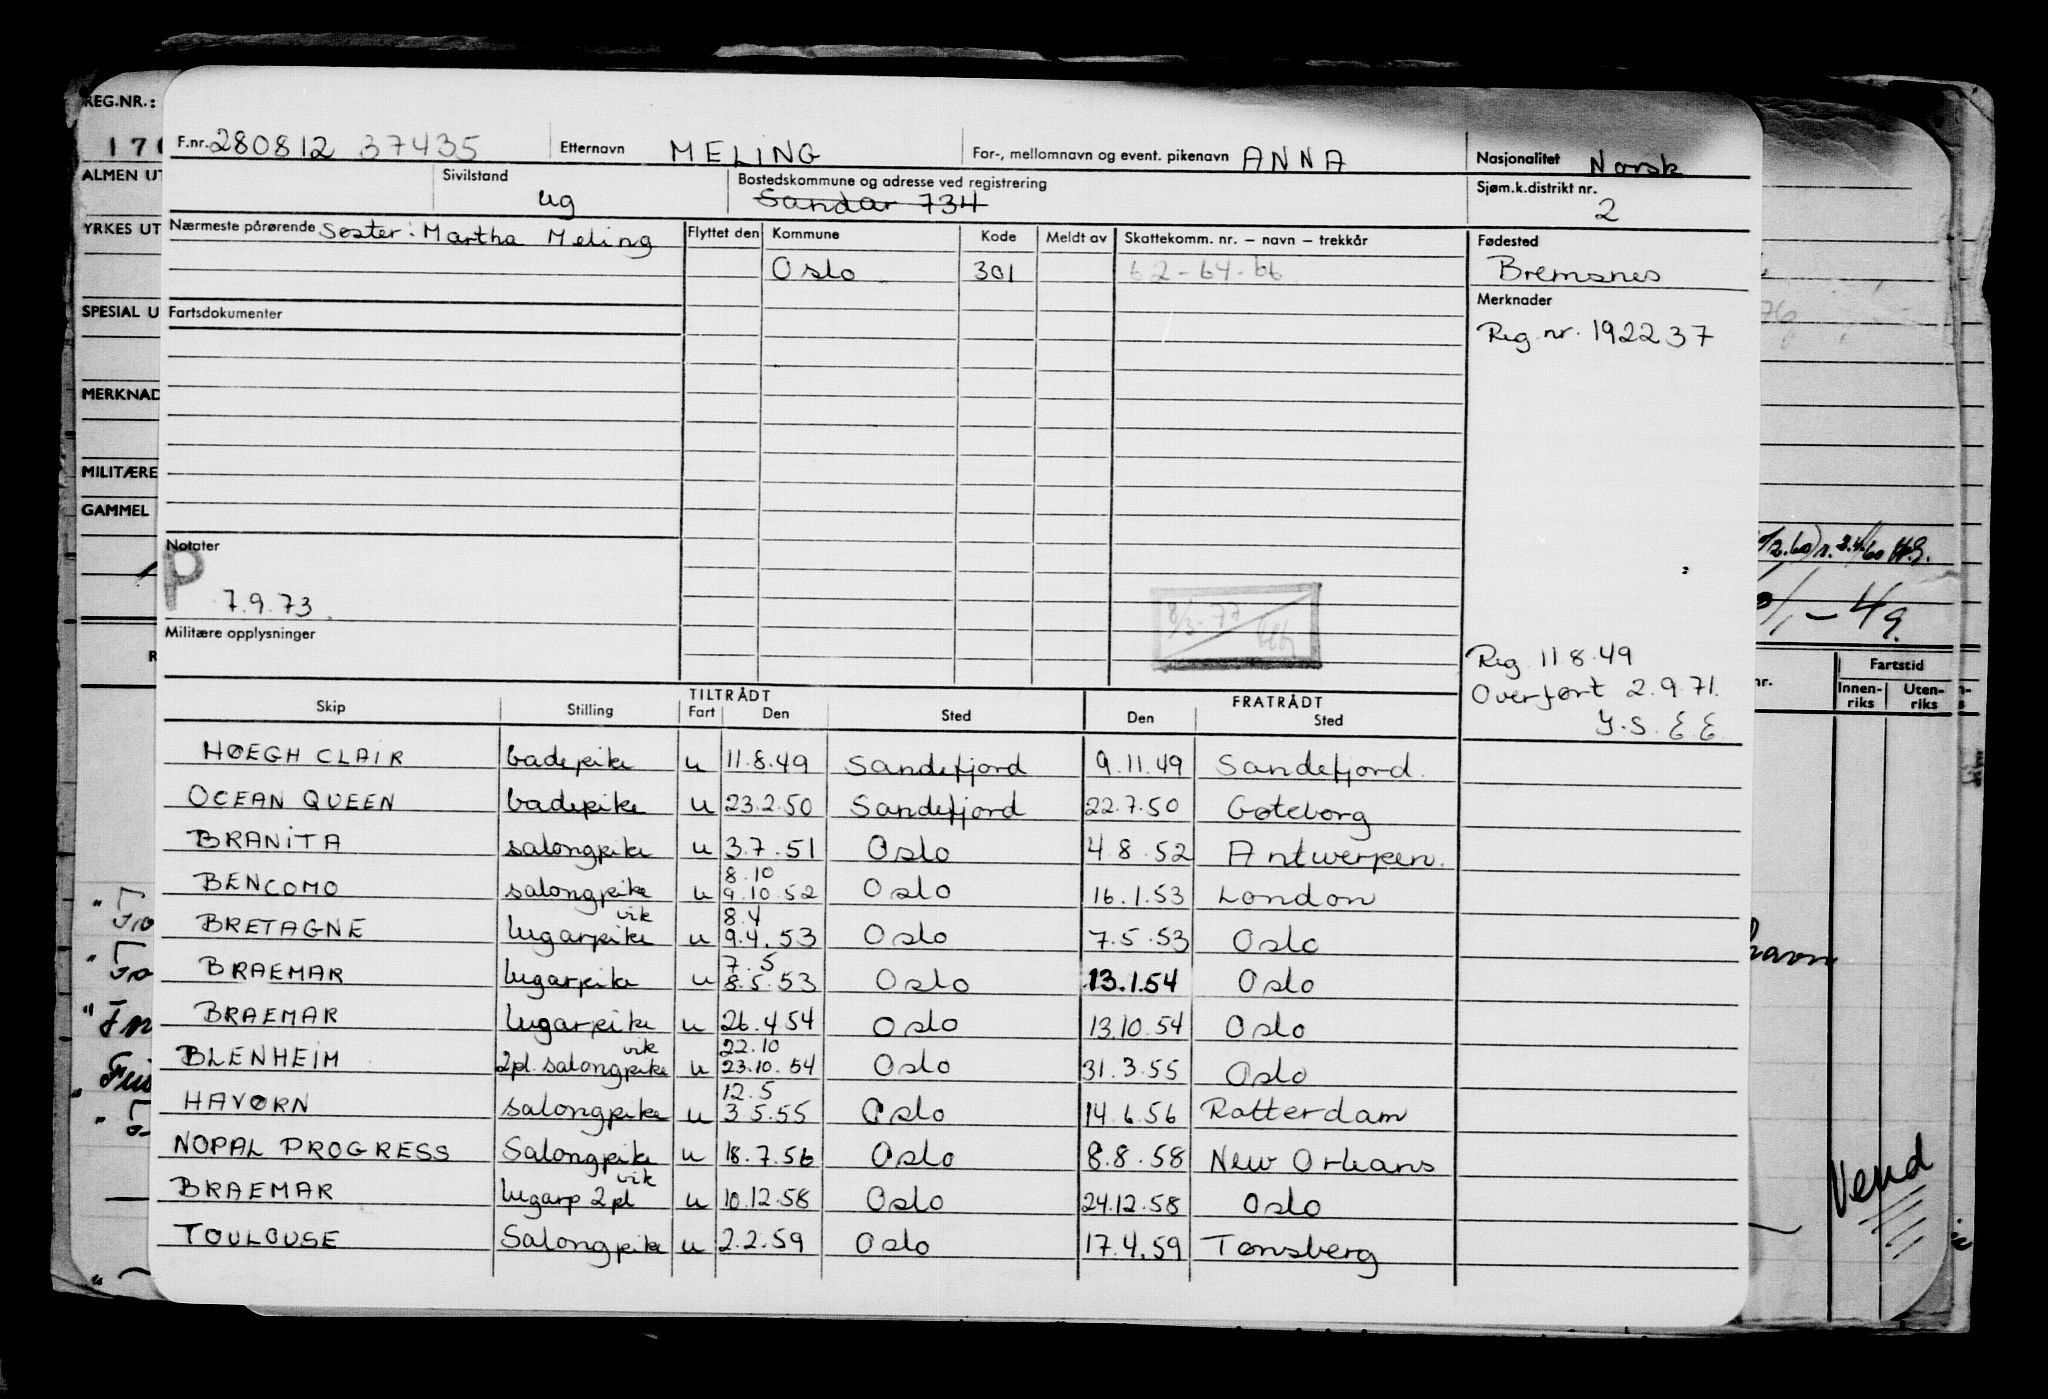 REG.NR.:
F.nr. 280812 37435 Etternavn MELING For-, mellomnavn og event. pikenavn ANNA Nasjonalitet Norsk
ALMEN UT
Sivilstand ug Bostedskommune og adresse ved registrering Sandar 734 Sjøm.k.distrikt nr. 2
YRKES UT
Nærmeste pårørende Søster: Martha Meling Flyttet den Kommune Kode Meldt av Skattekomm. nr. – navn – trekkår Fødested
Oslo 301 62-64-66 Bremsnes
SPESIAL U
Fartsdokumenter Merknader
Reg nr. 192237
MERKNAD
MILITÆRE
GAMMEL
Notater
P
7.9.73
8/3-77
Militære opplysninger
Reg 11.8.49
Overført 2.9.71.
Y.S. E.E.
Fartstid
nr. Innen-riks Uten-riks
TILTRÅDT FRATRÅDT
Skip Stilling Fart Den Sted Den Sted
HØEGH CLAIR badepike u 11.8.49 Sandefjord 9.11.49 Sandefjord.
OCEAN QUEEN badepike u 23.2.50 Sandefjord 22.7.50 Gøteborg
BRANITA salongpike u 3.7.51 Oslo 4.8.52 Antwerpen.
8.10
BENCOMO salongpike u 9.10.52 Oslo 16.1.53 London
vik 8.4
BRETAGNE lugarpike u 9.4.53 Oslo 7.5.53 Oslo
7.5
BRAEMAR lugarpike u 8.5.53 Oslo 13.1.54 Oslo
BRAEMAR lugarpike u 26.4.54 Oslo 13.10.54 Oslo
vik 22.10
BLENHEIM 2pl. salongpike u 23.10.54 Oslo 31.3.55 Oslo
12.5
HAVØRN salongpike u 3.5.55 Oslo 14.6.56 Rotterdam
NOPAL PROGRESS Salongpike u 18.7.56 Oslo 8.8.58 New Orleans
vik
BRAEMAR lugarp 2pl u 10.12.58 Oslo 24.12.58 Oslo
TOULOUSE Salongpike u 2.2.59 Oslo 17.4.59 Tønsberg
havn
Vend